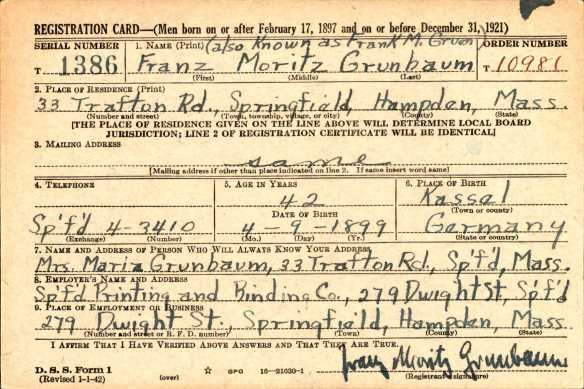 REGISTRATION CARD—(Men born on or after February 17, 1897 and on or before December 31, 1921)
SERIAL NUMBER 1. NAME (Print) (also Known as Frank M. Gruen) ORDER NUMBER
T 1386 Franz Moritz Grunbaum T 10981
(First) (Middle) (Last)
2. PLACE OF RESIDENCE (Print)
33 Trafton Rd., Springfield, Hampden, Mass.
(Number and street) (Town, township, village, or city) (County) (State)
[THE PLACE OF RESIDENCE GIVEN ON THE LINE ABOVE WILL DETERMINE LOCAL BOARD
JURISDICTION; LINE 2 OF REGISTRATION CERTIFICATE WILL BE IDENTICAL]
3. MAILING ADDRESS
same
[Mailing address if other than place indicated on line 2. If same insert word same]
4. TELEPHONE 5. AGE IN YEARS 6. PLACE OF BIRTH
42 Kassel
DATE OF BIRTH (Town or county)
Sp'f'd 4-3410 4-9-1899 Germany
(Exchange) (Number) (Mo.) (Day) (Yr.) (State or country)
7. NAME AND ADDRESS OF PERSON WHO WILL ALWAYS KNOW YOUR ADDRESS
Mrs. Maria Grunbaum, 33 Trafton Rd., Sp'f'd, Mass.
8. EMPLOYER'S NAME AND ADDRESS
Sp'f'd Printing and Binding Co., 279 Dwight St, Sp'f'd
9. PLACE OF EMPLOYMENT OR BUSINESS
279 Dwight St., Springfield, Hampden, Mass.
(Number and street or R. F. D. number) (Town) (County) (State)
I AFFIRM THAT I HAVE VERIFIED ABOVE ANSWERS AND THAT THEY ARE TRUE.
Franz Moritz Grunbaum
D. S. S. Form 1
(Revised 1-1-42) (over) ☆ GPO 16—21630-1 (Registrant's signature)